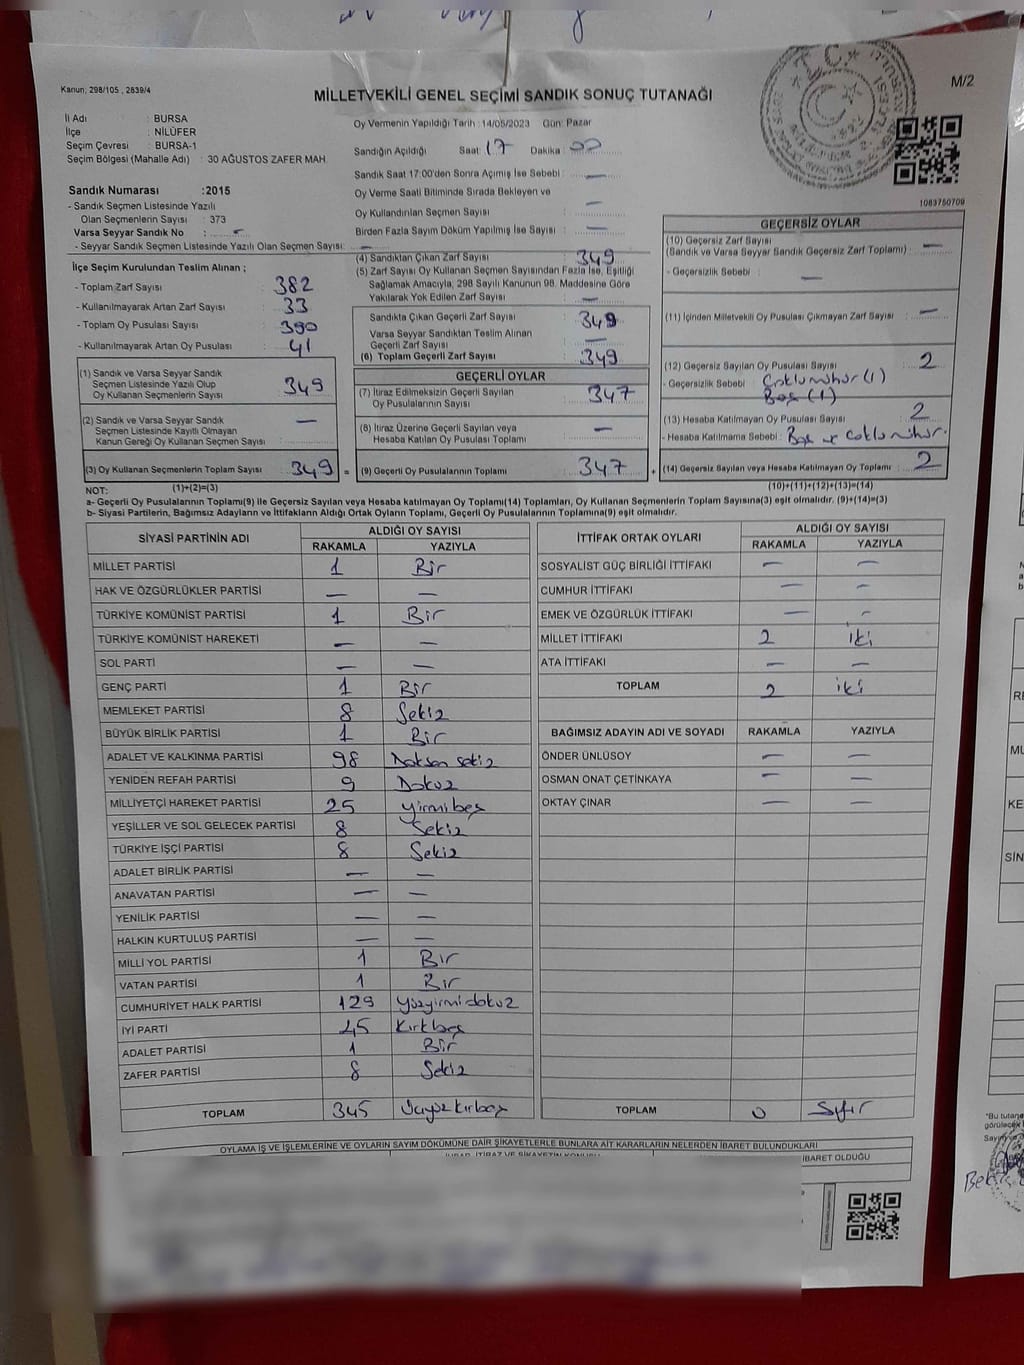 Kanun; 298/105 , 2839/4
MİLLETVEKİLİ GENEL SEÇİMİ SANDIK SONUÇ TUTANAĞI
M/2
İl Adı : BURSA
İlçe : NİLÜFER
Seçim Çevresi : BURSA-1
Seçim Bölgesi (Mahalle Adı) : 30 AĞUSTOS ZAFER MAH.
Sandık Numarası :2015
- Sandık Seçmen Listesinde Yazılı
Olan Seçmenlerin Sayısı : 373
Varsa Seyyar Sandık No : —
- Seyyar Sandık Seçmen Listesinde Yazılı Olan Seçmen Sayısı: —
İlçe Seçim Kurulundan Teslim Alınan ;
- Toplam Zarf Sayısı : 382
- Kullanılmayarak Artan Zarf Sayısı : 33
- Toplam Oy Pusulası Sayısı : 390
- Kullanılmayarak Artan Oy Pusulası : 41
(1) Sandık ve Varsa Seyyar Sandık
Seçmen Listesinde Yazılı Olup
Oy Kullanan Seçmenlerin Sayısı : 349
(2) Sandık ve Varsa Seyyar Sandık
Seçmen Listesinde Kayıtlı Olmayan
Kanun Gereği Oy Kullanan Seçmen Sayısı : —
(3) Oy Kullanan Seçmenlerin Toplam Sayısı : 349 =
(1)+(2)=(3)
Oy Vermenin Yapıldığı Tarih : 14/05/2023 Gün: Pazar
Sandığın Açıldığı Saat : 17 Dakika : 00
Sandık Saat 17:00'den Sonra Açımış İse Sebebi : —
Oy Verme Saati Bitiminde Sırada Bekleyen ve
Oy Kullandırılan Seçmen Sayısı : —
Birden Fazla Sayım Döküm Yapılmış İse Sayısı : —
(4) Sandıktan Çıkan Zarf Sayısı : 349
(5) Zarf Sayısı Oy Kullanan Seçmen Sayısından Fazla İse, Eşitliği
Sağlamak Amacıyla, 298 Sayılı Kanunun 98. Maddesine Göre
Yakılarak Yok Edilen Zarf Sayısı : —
Sandıkta Çıkan Geçerli Zarf Sayısı : 349
Varsa Seyyar Sandıktan Teslim Alınan
Geçerli Zarf Sayısı : —
(6) Toplam Geçerli Zarf Sayısı : 349
GEÇERLİ OYLAR
(7) İtiraz Edilmeksizin Geçerli Sayılan
Oy Pusulalarının Sayısı : 347
(8) İtiraz Üzerine Geçerli Sayılan veya
Hesaba Katılan Oy Pusulası Toplamı : —
(9) Geçerli Oy Pusulalarının Toplamı : 347 +
1083750709
GEÇERSİZ OYLAR
(10) Geçersiz Zarf Sayısı
(Sandık ve Varsa Seyyar Sandık Geçersiz Zarf Toplamı) : —
- Geçersizlik Sebebi : —
(11) İçinden Milletvekili Oy Pusulası Çıkmayan Zarf Sayısı : —
(12) Geçersiz Sayılan Oy Pusulası Sayısı : 2
- Geçersizlik Sebebi : Çoklumühür (1)
Boş (1)
(13) Hesaba Katılmayan Oy Pusulası Sayısı : 2
- Hesaba Katılmama Sebebi : Boş ve Çoklumühür.
(14) Geçersiz Sayılan veya Hesaba Katılmayan Oy Toplamı : 2
(10)+(11)+(12)+(13)=(14)
NOT:
a- Geçerli Oy Pusulalarının Toplamı(9) ile Geçersiz Sayılan veya Hesaba katılmayan Oy Toplamı(14) Toplamları, Oy Kullanan Seçmenlerin Toplam Sayısına(3) eşit olmalıdır. (9)+(14)=(3)
b- Siyasi Partilerin, Bağımsız Adayların ve İttifakların Aldığı Ortak Oyların Toplamı, Geçerli Oy Pusulalarının Toplamına(9) eşit olmalıdır.
SİYASİ PARTİNİN ADI ALDIĞI OY SAYISI
RAKAMLA YAZIYLA
MİLLET PARTİSİ 1 Bir
HAK VE ÖZGÜRLÜKLER PARTİSİ — —
TÜRKİYE KOMÜNİST PARTİSİ 1 Bir
TÜRKİYE KOMÜNİST HAREKETİ — —
SOL PARTİ — —
GENÇ PARTİ 1 Bir
MEMLEKET PARTİSİ 8 Sekiz
BÜYÜK BİRLİK PARTİSİ 1 Bir
ADALET VE KALKINMA PARTİSİ 98 Doksan sekiz
YENİDEN REFAH PARTİSİ 9 Dokuz
MİLLİYETÇİ HAREKET PARTİSİ 25 yirmibeş
YEŞİLLER VE SOL GELECEK PARTİSİ 8 Sekiz
TÜRKİYE İŞÇİ PARTİSİ 8 Sekiz
ADALET BİRLİK PARTİSİ — —
ANAVATAN PARTİSİ — —
YENİLİK PARTİSİ — —
HALKIN KURTULUŞ PARTİSİ — —
MİLLİ YOL PARTİSİ 1 Bir
VATAN PARTİSİ 1 Bir
CUMHURİYET HALK PARTİSİ 129 yüzyirmidokuz
İYİ PARTİ 45 kırkbeş
ADALET PARTİSİ 1 Bir
ZAFER PARTİSİ 8 Sekiz
TOPLAM 345 Üçyüzkırbeş
İTTİFAK ORTAK OYLARI ALDIĞI OY SAYISI
RAKAMLA YAZIYLA
SOSYALİST GÜÇ BİRLİĞİ İTTİFAKI — —
CUMHUR İTTİFAKI — —
EMEK VE ÖZGÜRLÜK İTTİFAKI — —
MİLLET İTTİFAKI 2 iki
ATA İTTİFAKI — —
TOPLAM 2 iki
BAĞIMSIZ ADAYIN ADI VE SOYADI RAKAMLA YAZIYLA
ÖNDER ÜNLÜSOY — —
OSMAN ONAT ÇETİNKAYA — —
OKTAY ÇINAR — —
TOPLAM 0 Sıfır
OYLAMA İŞ VE İŞLEMLERİNE VE OYLARIN SAYIM DÖKÜMÜNE DAİR ŞİKAYETLERLE BUNLARA AİT KARARLARIN NELERDEN İBARET BULUNDUKLARI
İBARET OLDUĞU